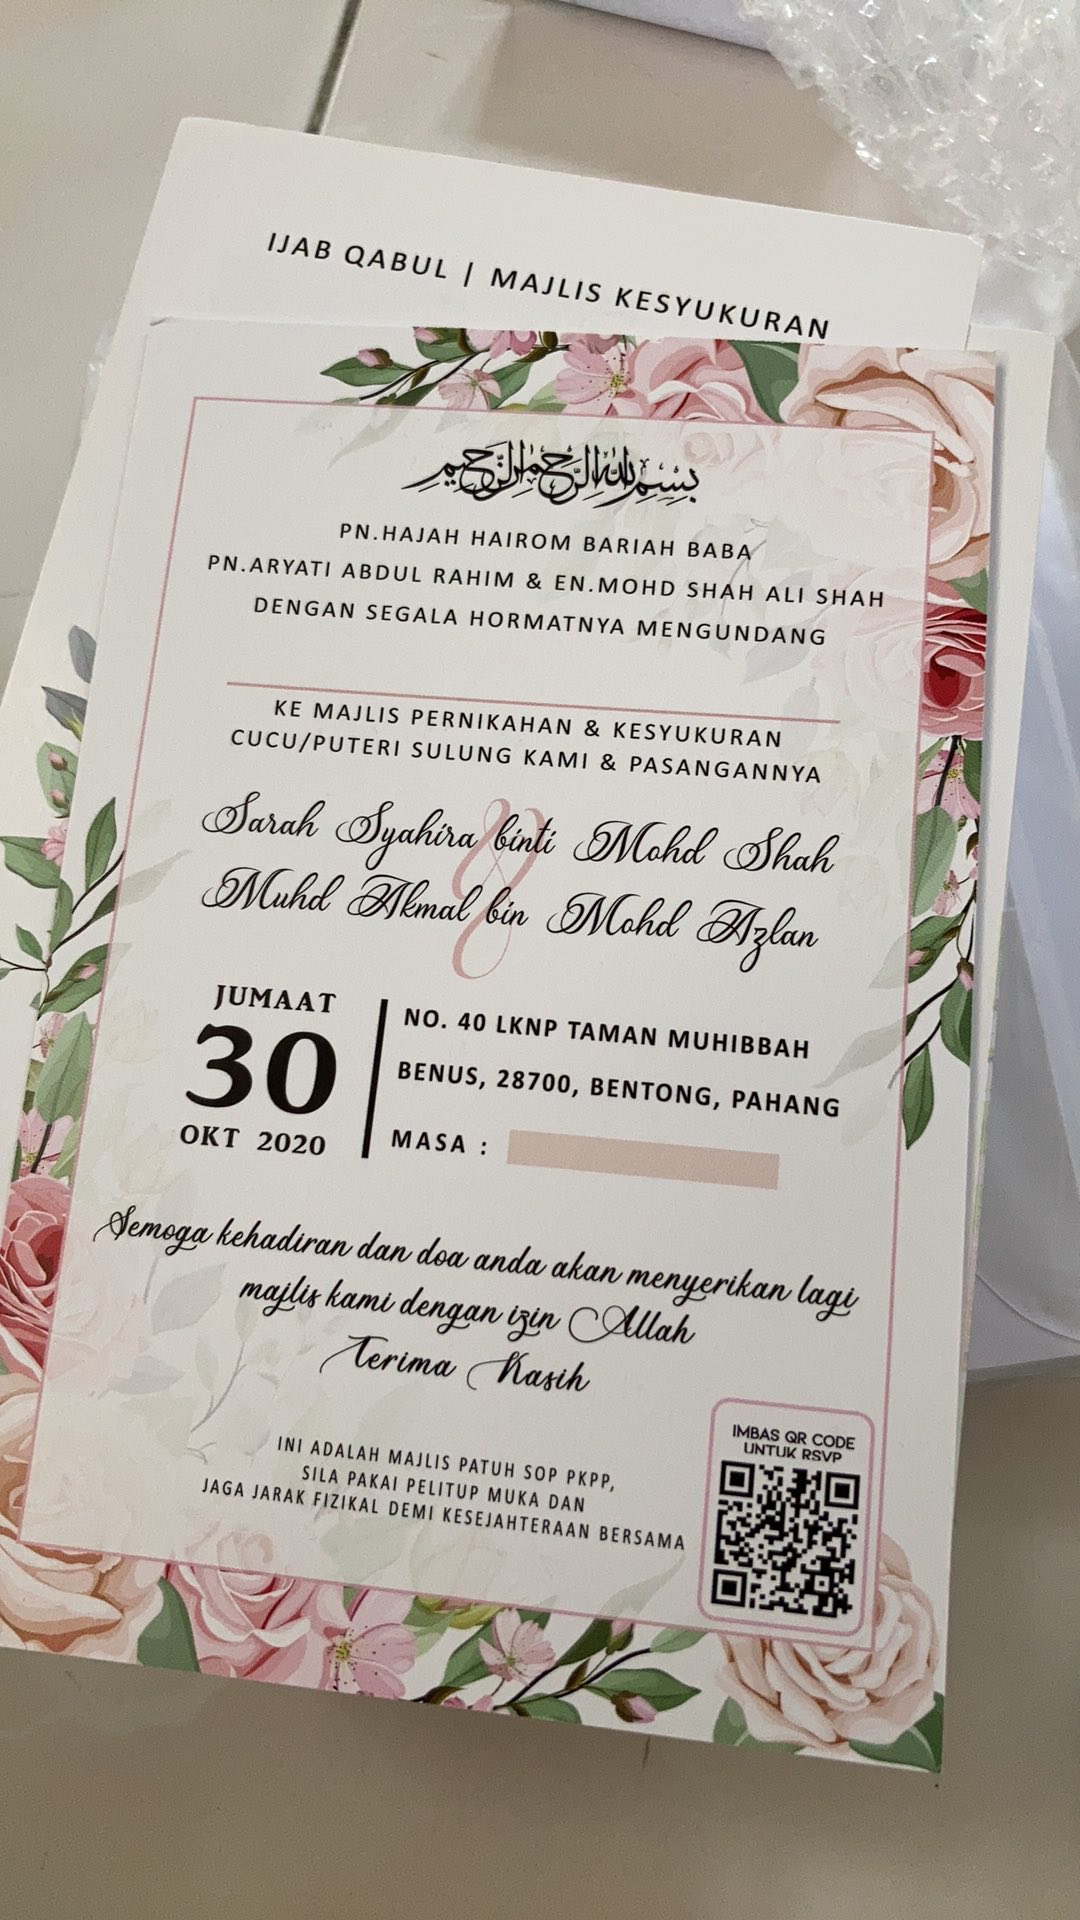 IJAB QABUL | MAJLIS KESYUKURAN
بسم الله الرحمن الرحيم
PN.HAJAH HAIROM BARIAH BABA
PN.ARYATI ABDUL RAHIM & EN.MOHD SHAH ALI SHAH
DENGAN SEGALA HORMATNYA MENGUNDANG
KE MAJLIS PERNIKAHAN & KESYUKURAN
CUCU/PUTERI SULUNG KAMI & PASANGANNYA
Sarah Syahira binti Mohd Shah
&
Muhd Akmal bin Mohd Azlan
JUMAAT
30
OKT 2020
NO. 40 LKNP TAMAN MUHIBBAH
BENUS, 28700, BENTONG, PAHANG
MASA :
Semoga kehadiran dan doa anda akan menyerikan lagi
majlis kami dengan izin Allah
Terima Kasih
INI ADALAH MAJLIS PATUH SOP PKPP,
SILA PAKAI PELITUP MUKA DAN
JAGA JARAK FIZIKAL DEMI KESEJAHTERAAN BERSAMA
IMBAS QR CODE
UNTUK RSVP